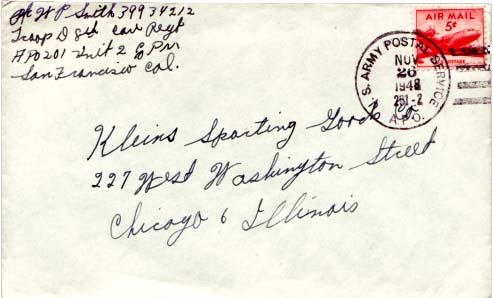 Pfc W P Smith 39934212
Troop D 8th Cav Regt
APO 201 Unit 2 % P.M.
San Francisco Cal.
AIR MAIL
5¢
POSTAGE
U. S. ARMY POSTAL SERVICE
NOV
26
1948
201-2
A.P.O.
Kleins Sporting Goods Co
227 West Washington Street
Chicago 6 Illinois